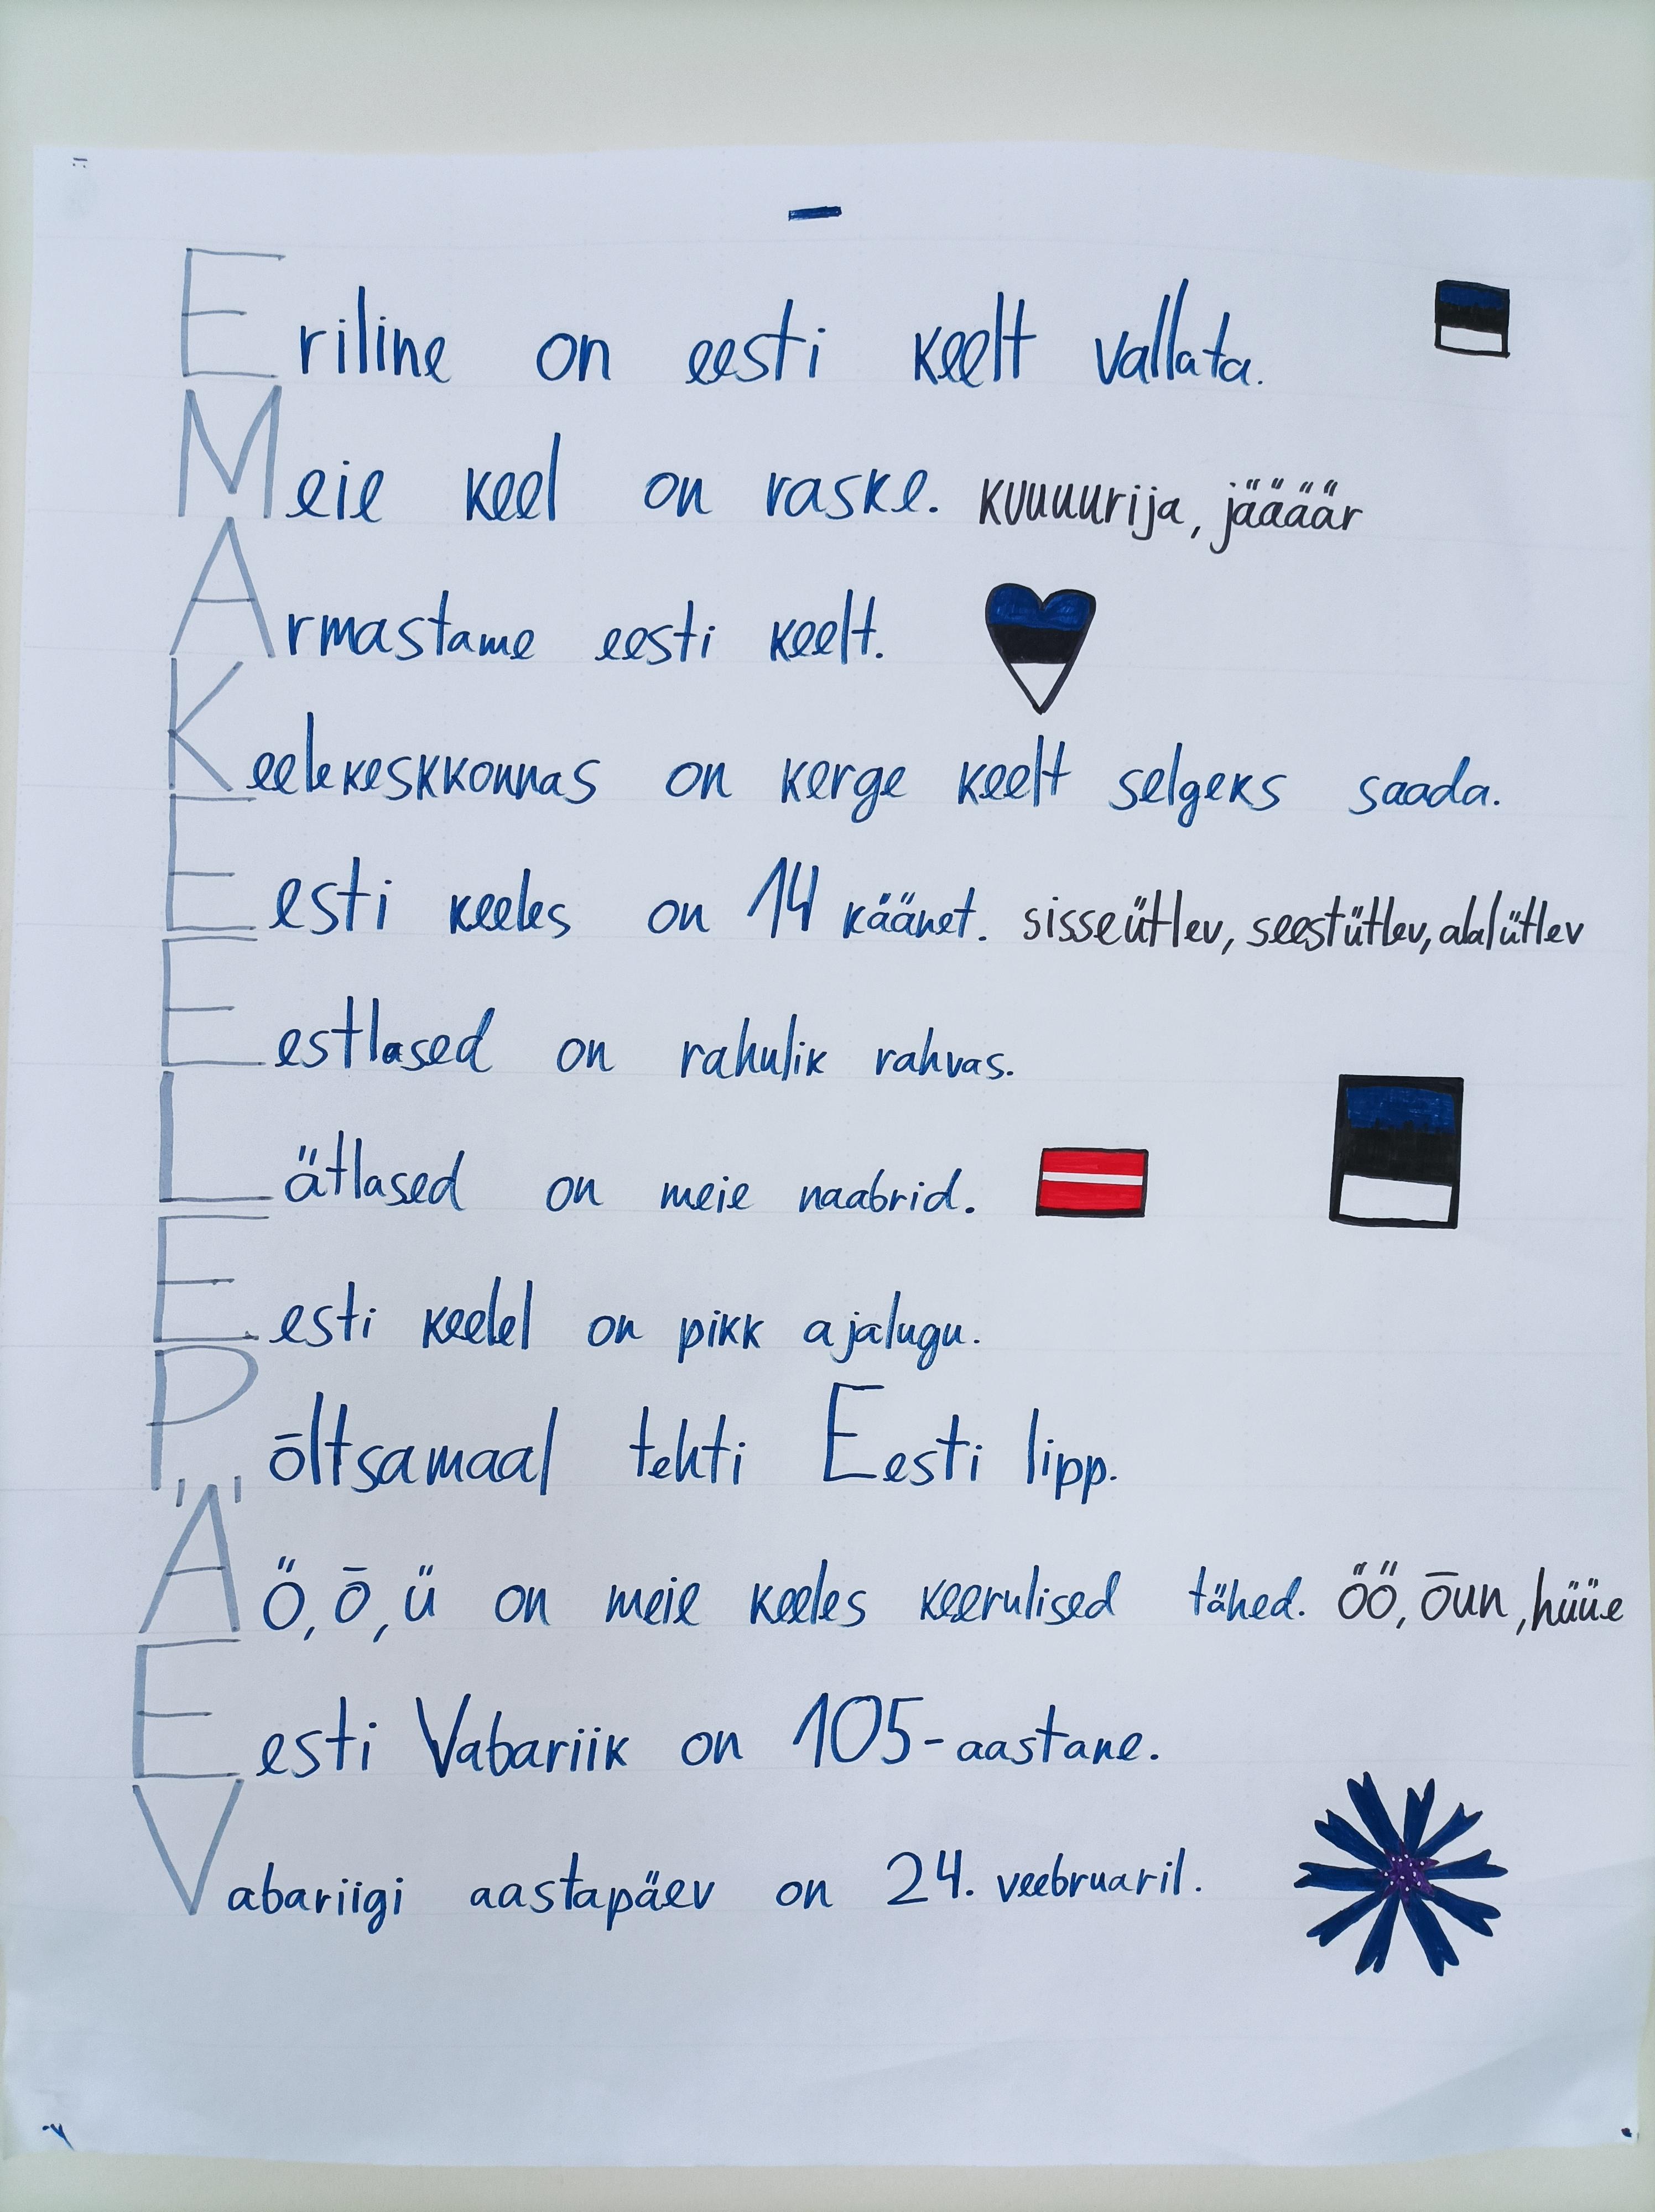 Eriline on eesti keelt vallata.
Meie keel on raske. kuuuurija, jäääär
Armastame eesti keelt.
Keelekeskkonnas on kerge keelt selgeks saada.
Eesti keeles on 14 käänet. sisseütlev, seestütlev, alalütlev
Eestlased on rahulik rahvas.
Lätlased on meie naabrid.
Eesti keelel on pikk ajalugu.
Põltsamaal tehti Eesti lipp.
Ä Ö, õ, ü on meie keeles keerulised tähed. öö, õun, hüüe
Eesti Vabariik on 105-aastane.
Vabariigi aastapäev on 24. veebruaril.